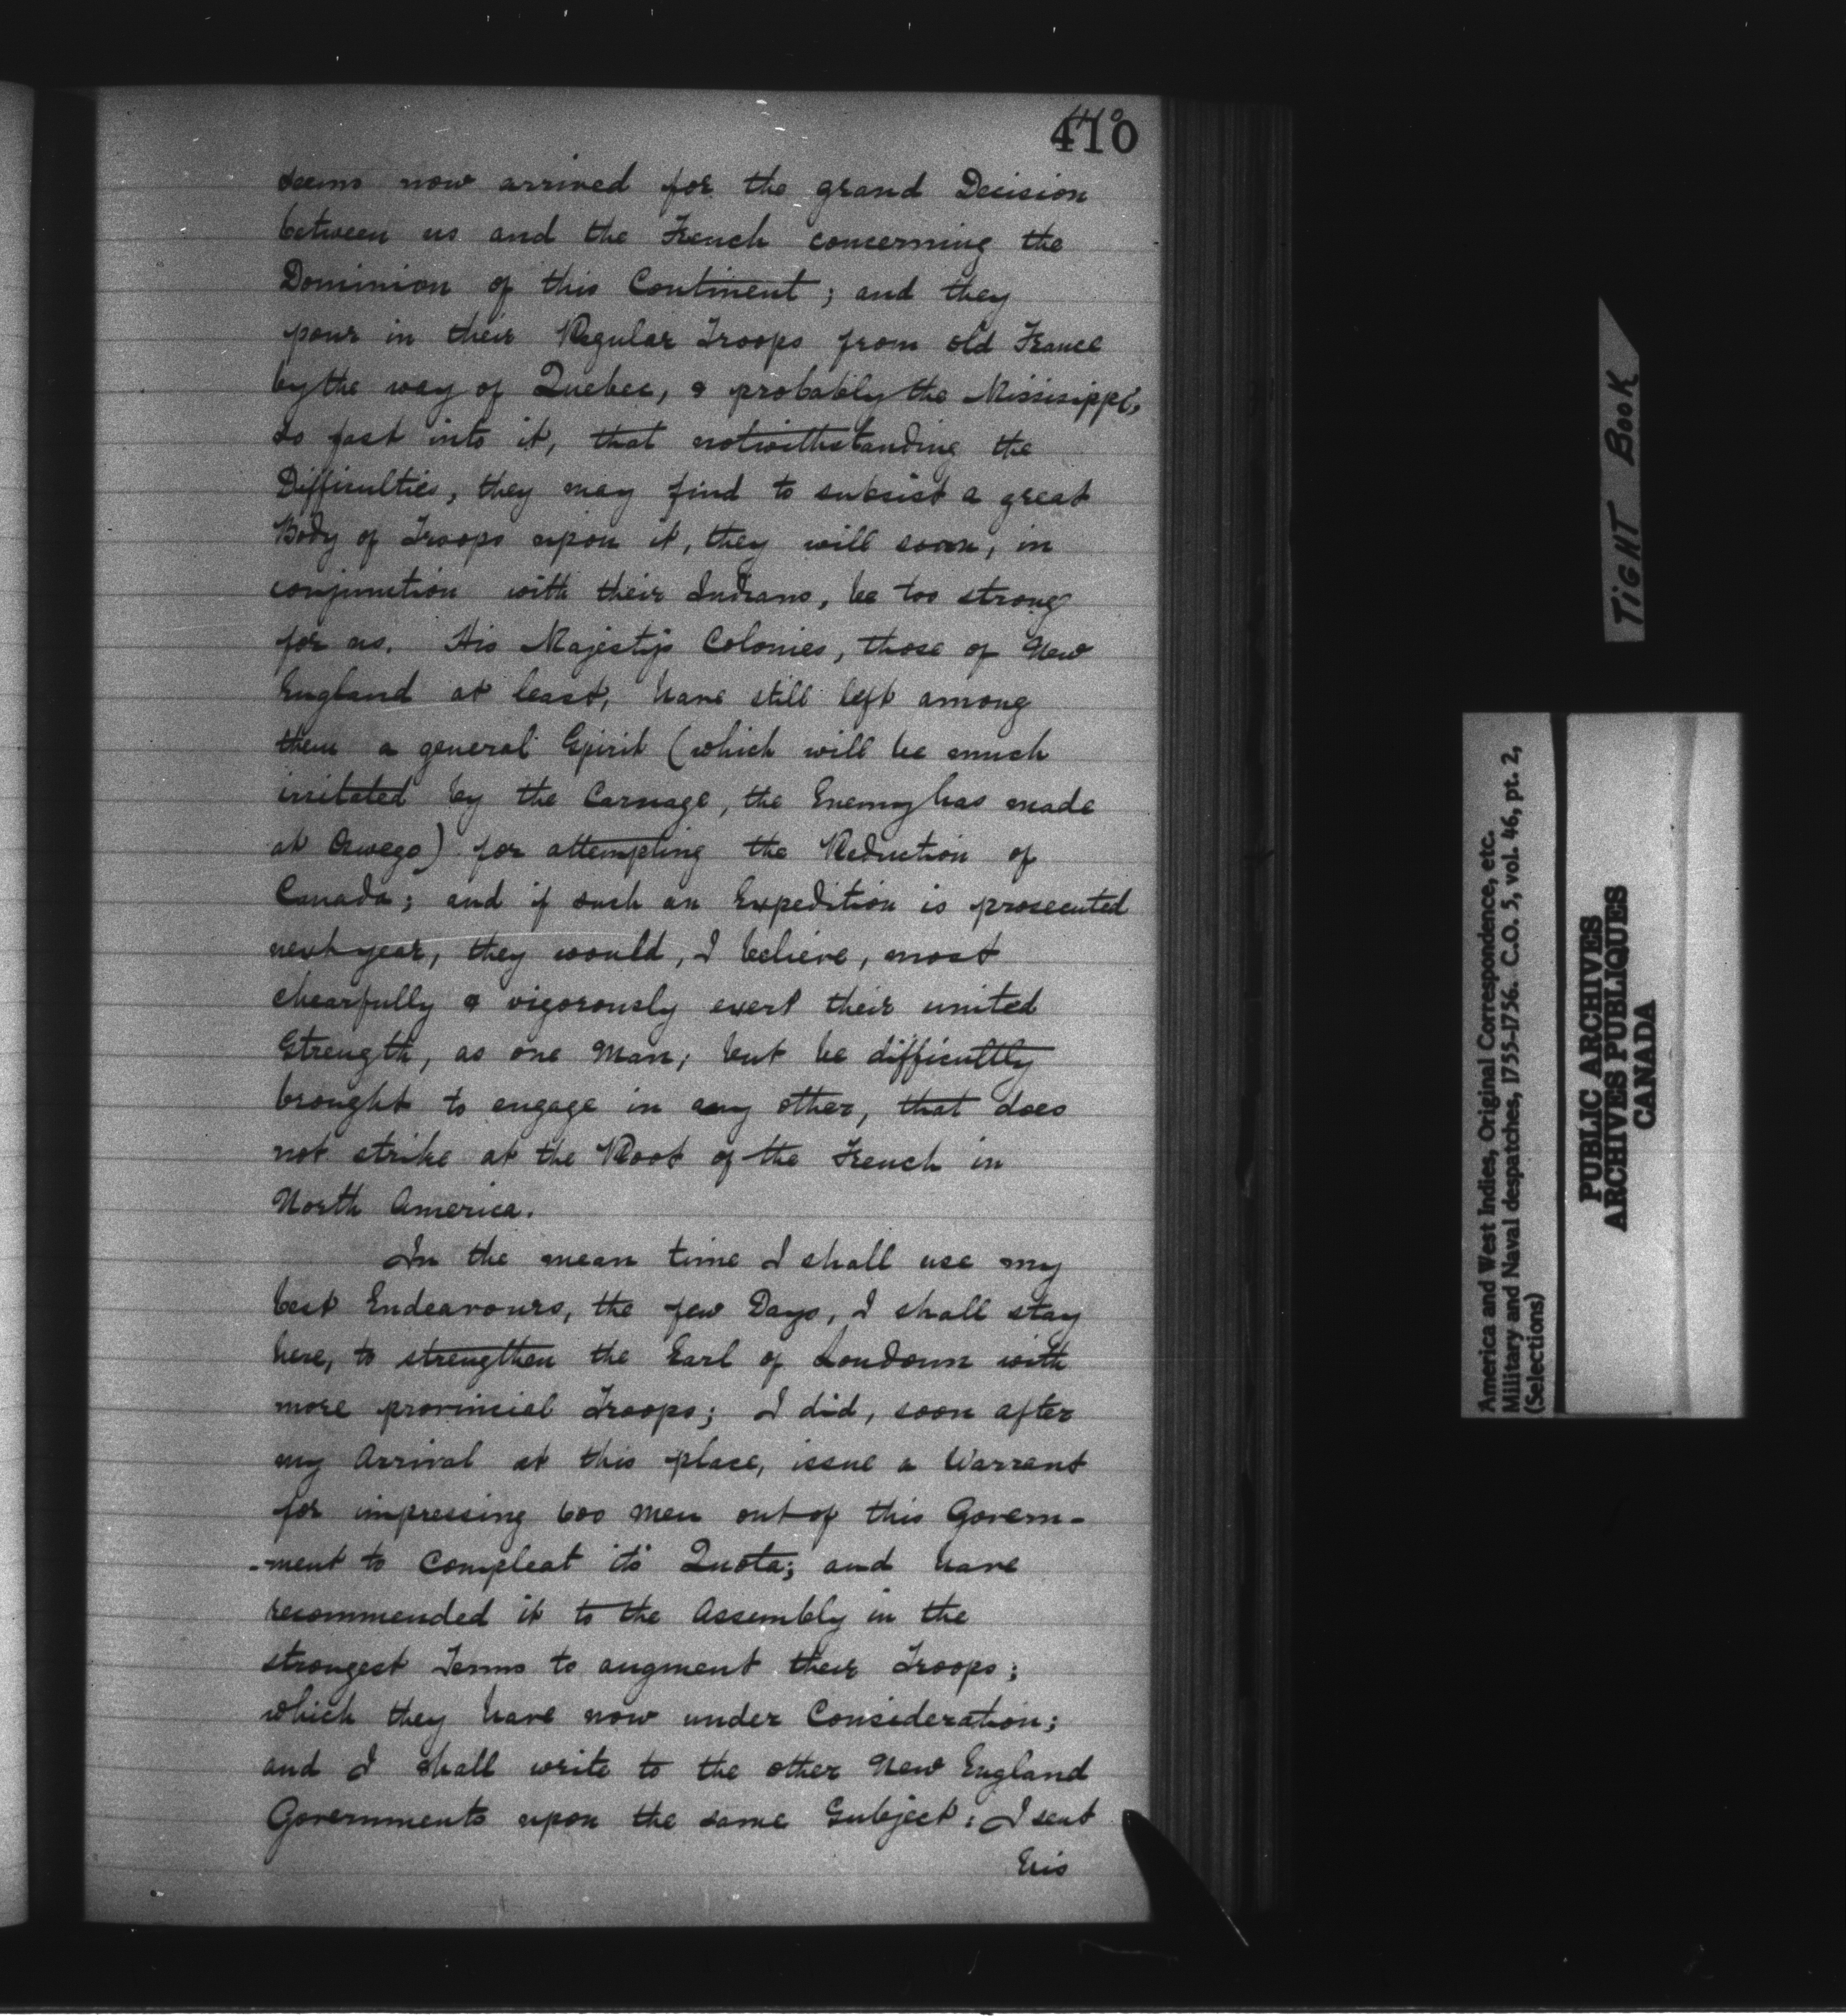 410
seems now arrived for the grand Decision
between us and the French concerning the
Dominion of this Continent; and they
pour in their Regular Troops from old France
by the way of Quebec, & probably the Missisippi,
so fast into it, that notwithstanding the
Difficulties, they may find to subsist a great
Body of Troops upon it, they will soon, in
conjunction with their Indians, be too strong
for us. His Majesty's Colonies, those of New
England at least, have still left among
them a general Spirit (which will be much
irritated by the Carnage, the Enemy has made
at Oswego) for attempting the Reduction of
Canada; and if such an Expedition is prosecuted
next year, they would, I believe, most
chearfully & vigorously exert their united
Strength, as one Man; but be difficultly
brought to engage in any other, that does
not strike at the Root of the French in
North America.
In the mean time I shall use my
best Endeavours, the few Days, I shall stay
here, to strengthen the Earl of Loudoun with
more provincial Troops; I did, soon after
my Arrival at this place, issue a Warrant
for impressing 600 Men out of this Govern-
-ment to compleat its Quota; and have
recommended it to the Assembly in the
strongest Terms to augment their Troops;
which they have now under Consideration;
and I shall write to the other New England
Governments upon the same Subject: I sent
his
TIGHT BOOK
America and West Indies, Original Correspondence, etc.
Military and Naval despatches, 1755-1756. C.O. 5, vol. 46, pt. 2,
(Selections)
PUBLIC ARCHIVES
ARCHIVES PUBLIQUES
CANADA